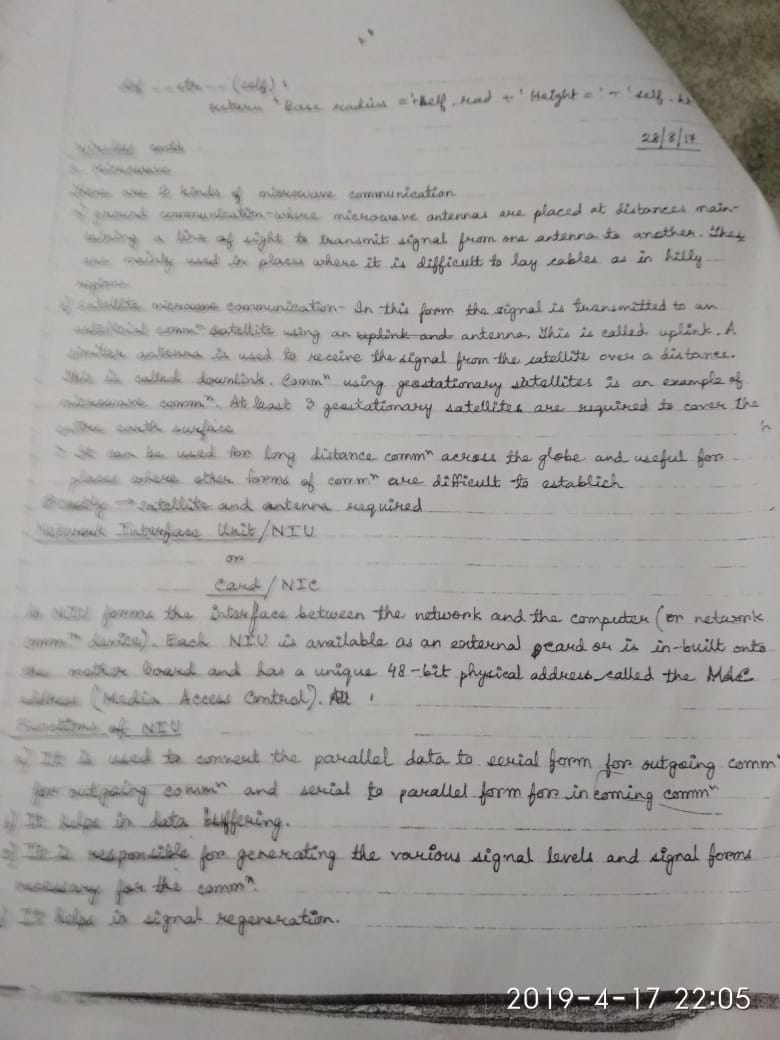 def __str__(self):
return "Base radius ='+self.rad + ' Height = ' - ' self.
28/8/17
Wireless
Microwave
There are 2 kinds of microwave communication
ground communication - where microwave antennas are placed at distances main-
taining a line of sight to transmit signal from one antenna to another. They
are mainly used in places where it is difficult to lay cables as in hilly
regions
satellite microwave communication - In this form the signal is transmitted to an
commⁿ satellite using an uplink and antenna. This is called uplink. A
similar antenna is used to receive the signal from the satellite over a distance.
This is called downlink. Commⁿ using geostationary satellites is an example of
microwave commⁿ. At least 3 geostationary satellites are required to cover the
entire earth surface
> It can be used for long distance commⁿ across the globe and useful for
places where other forms of commⁿ are difficult to establich
→ satellite and antenna required
Network Interface Unit/NIU
or
Card/NIC
NIU forms the interface between the network and the computer (or network
commⁿ device). Each NIU is available as an external card or is in-built onto
the mother board and has a unique 48-bit physical address, called the MAC
address (Media Access Control). All
Functions of NIU
a) It is used to convert the parallel data to serial form for outgoing comm
for outgoing commⁿ and serial to parallel form for incoming commⁿ
b) It helps in data buffering.
c) It is responsible for generating the various signal levels and signal forms
necessary for the commⁿ.
) It helps in signal regeneration.
2019-4-17 22:05